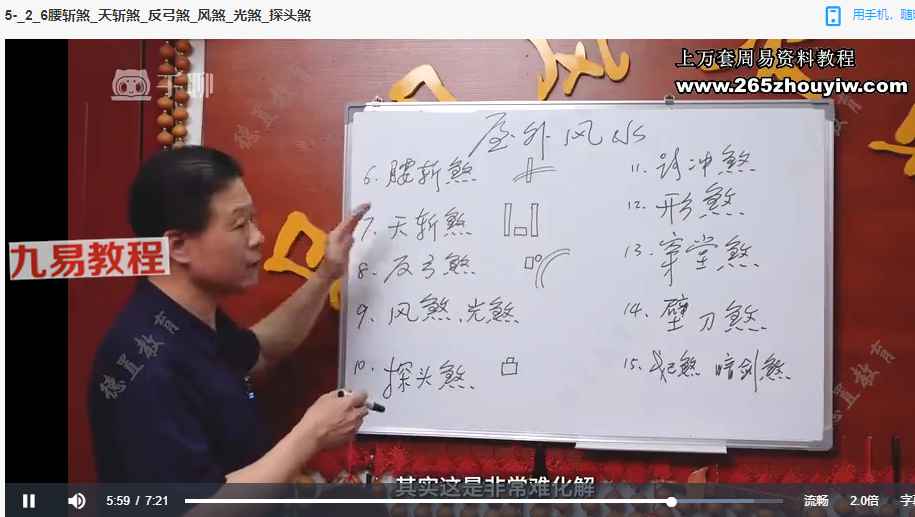 5-_2_6腰斩煞_天斩煞_反弓煞_风煞_光煞_探头煞
用手机、随
千聊
上万套周易资料教程
www.265zhouyiw.com
德置教育
屋外风水
6. 腰斩煞
7. 天斩煞
8. 反弓煞
9. 风煞、光煞
10. 探头煞.
11. 路冲煞
12. 形煞.
13. 穿堂煞
14. 壁刀煞.
15. 煞 暗剑煞
九易教程
德置教育
德置教育
其实这是非常难化解
5:59 / 7:21
流畅
2.0倍
字